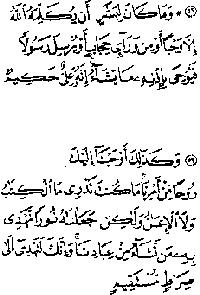 (٥١) * وَمَا كَانَ لِبَشَرٍ أَن يُكَلِّمَهُ اللَّهُ
إِلَّا وَحْيًا أَوْ مِن وَرَآئِ حِجَابٍ أَوْ يُرْسِلَ رَسُولًا
فَيُوحِىَ بِإِذْنِهِ مَا يَشَآءُ إِنَّهُ عَلِىٌّ حَكِيمٌ
(٥٢) وَكَذَٰلِكَ أَوْحَيْنَآ إِلَيْكَ
رُوحًا مِّنْ أَمْرِنَا مَا كُنتَ تَدْرِى مَا الْكِتَٰبُ
وَلَا الْإِيمَٰنُ وَلَٰكِن جَعَلْنَٰهُ نُورًا نَّهْدِى
بِهِ مَن نَّشَآءُ مِنْ عِبَادِنَا وَإِنَّكَ لَتَهْدِى إِلَىٰ
صِرَٰطٍ مُّسْتَقِيمٍ